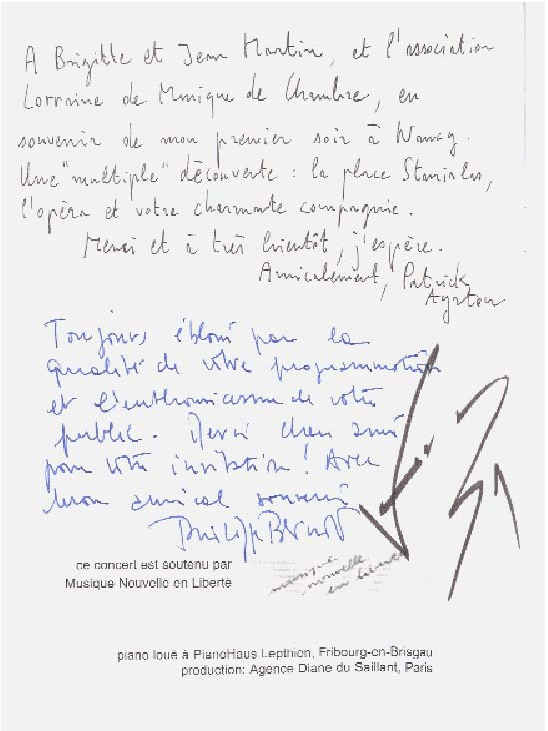 A Brigitte et Jean Martin, et l'association
Lorraine de Musique de Chambre, en
souvenir de mon premier soir à Nancy.
Une "multiple" découverte : la place Stanislas,
l'opéra et votre charmante compagnie.
Merci et à très bientôt, j'espère.
Amicalement, Patrick
Ayrton
Toujours ébloui par la
qualité de votre programmation
et l'enthousiasme de votre
public. Merci chers amis
pour votre invitation ! Avec
mon amical souvenir
ce concert est soutenu par
Musique Nouvelle en Liberté
musique
nouvelle
en liberté
piano loué à PianoHaus Lepthien, Fribourg-en-Brisgau
production: Agence Diane du Saillant, Paris